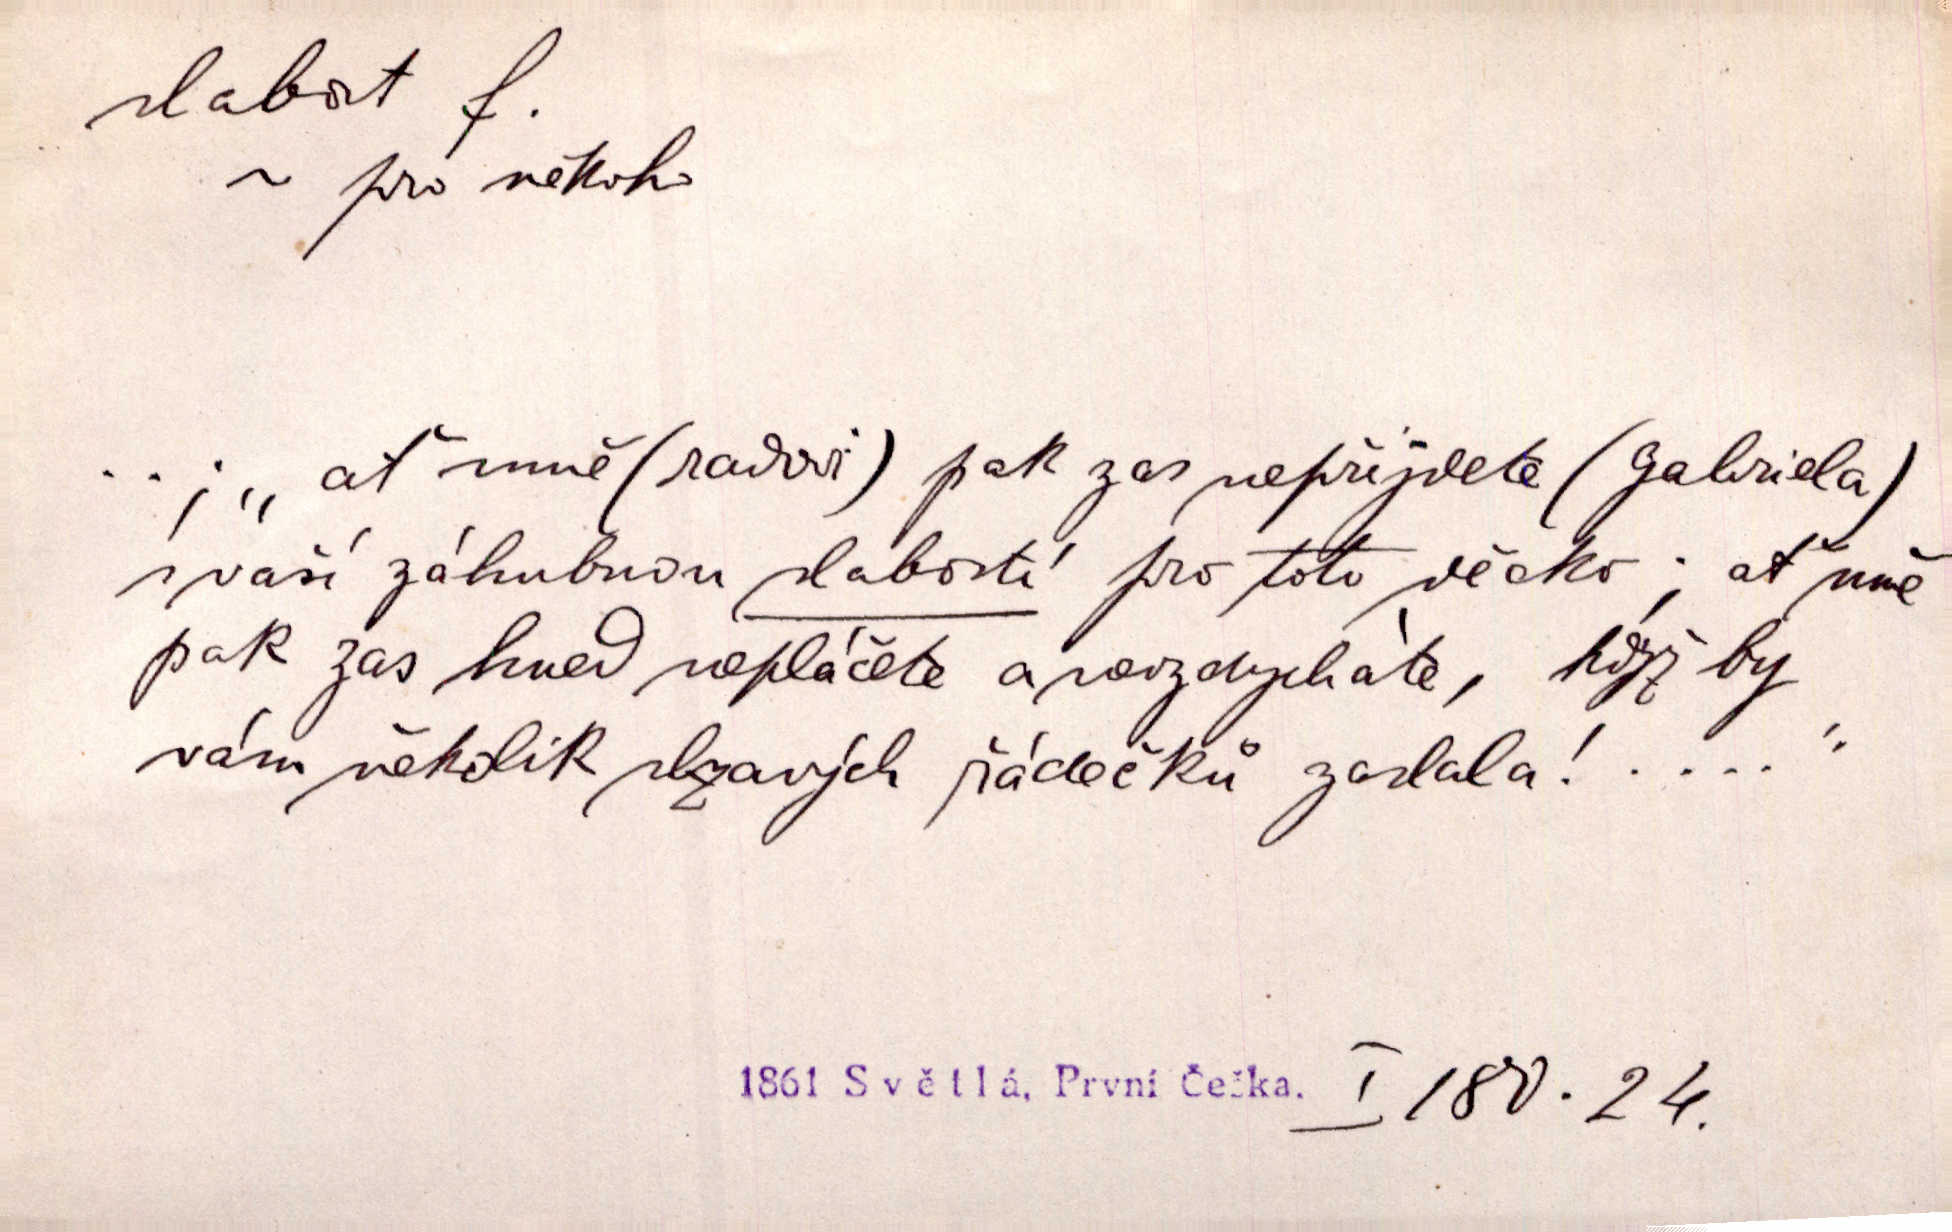 slabost f.
~ pro někoho
..; „ať mně (radovi) pak zas nepřijdete (Gabriela)
s vaší záhubnou slabostí pro toto děcko; ať mně
pak zas hned nepláčete a nevzdycháte, když by
vám několik slzavých řádečků zaslala! ....“
1861 Světlá, První Češka. I 180. 24.